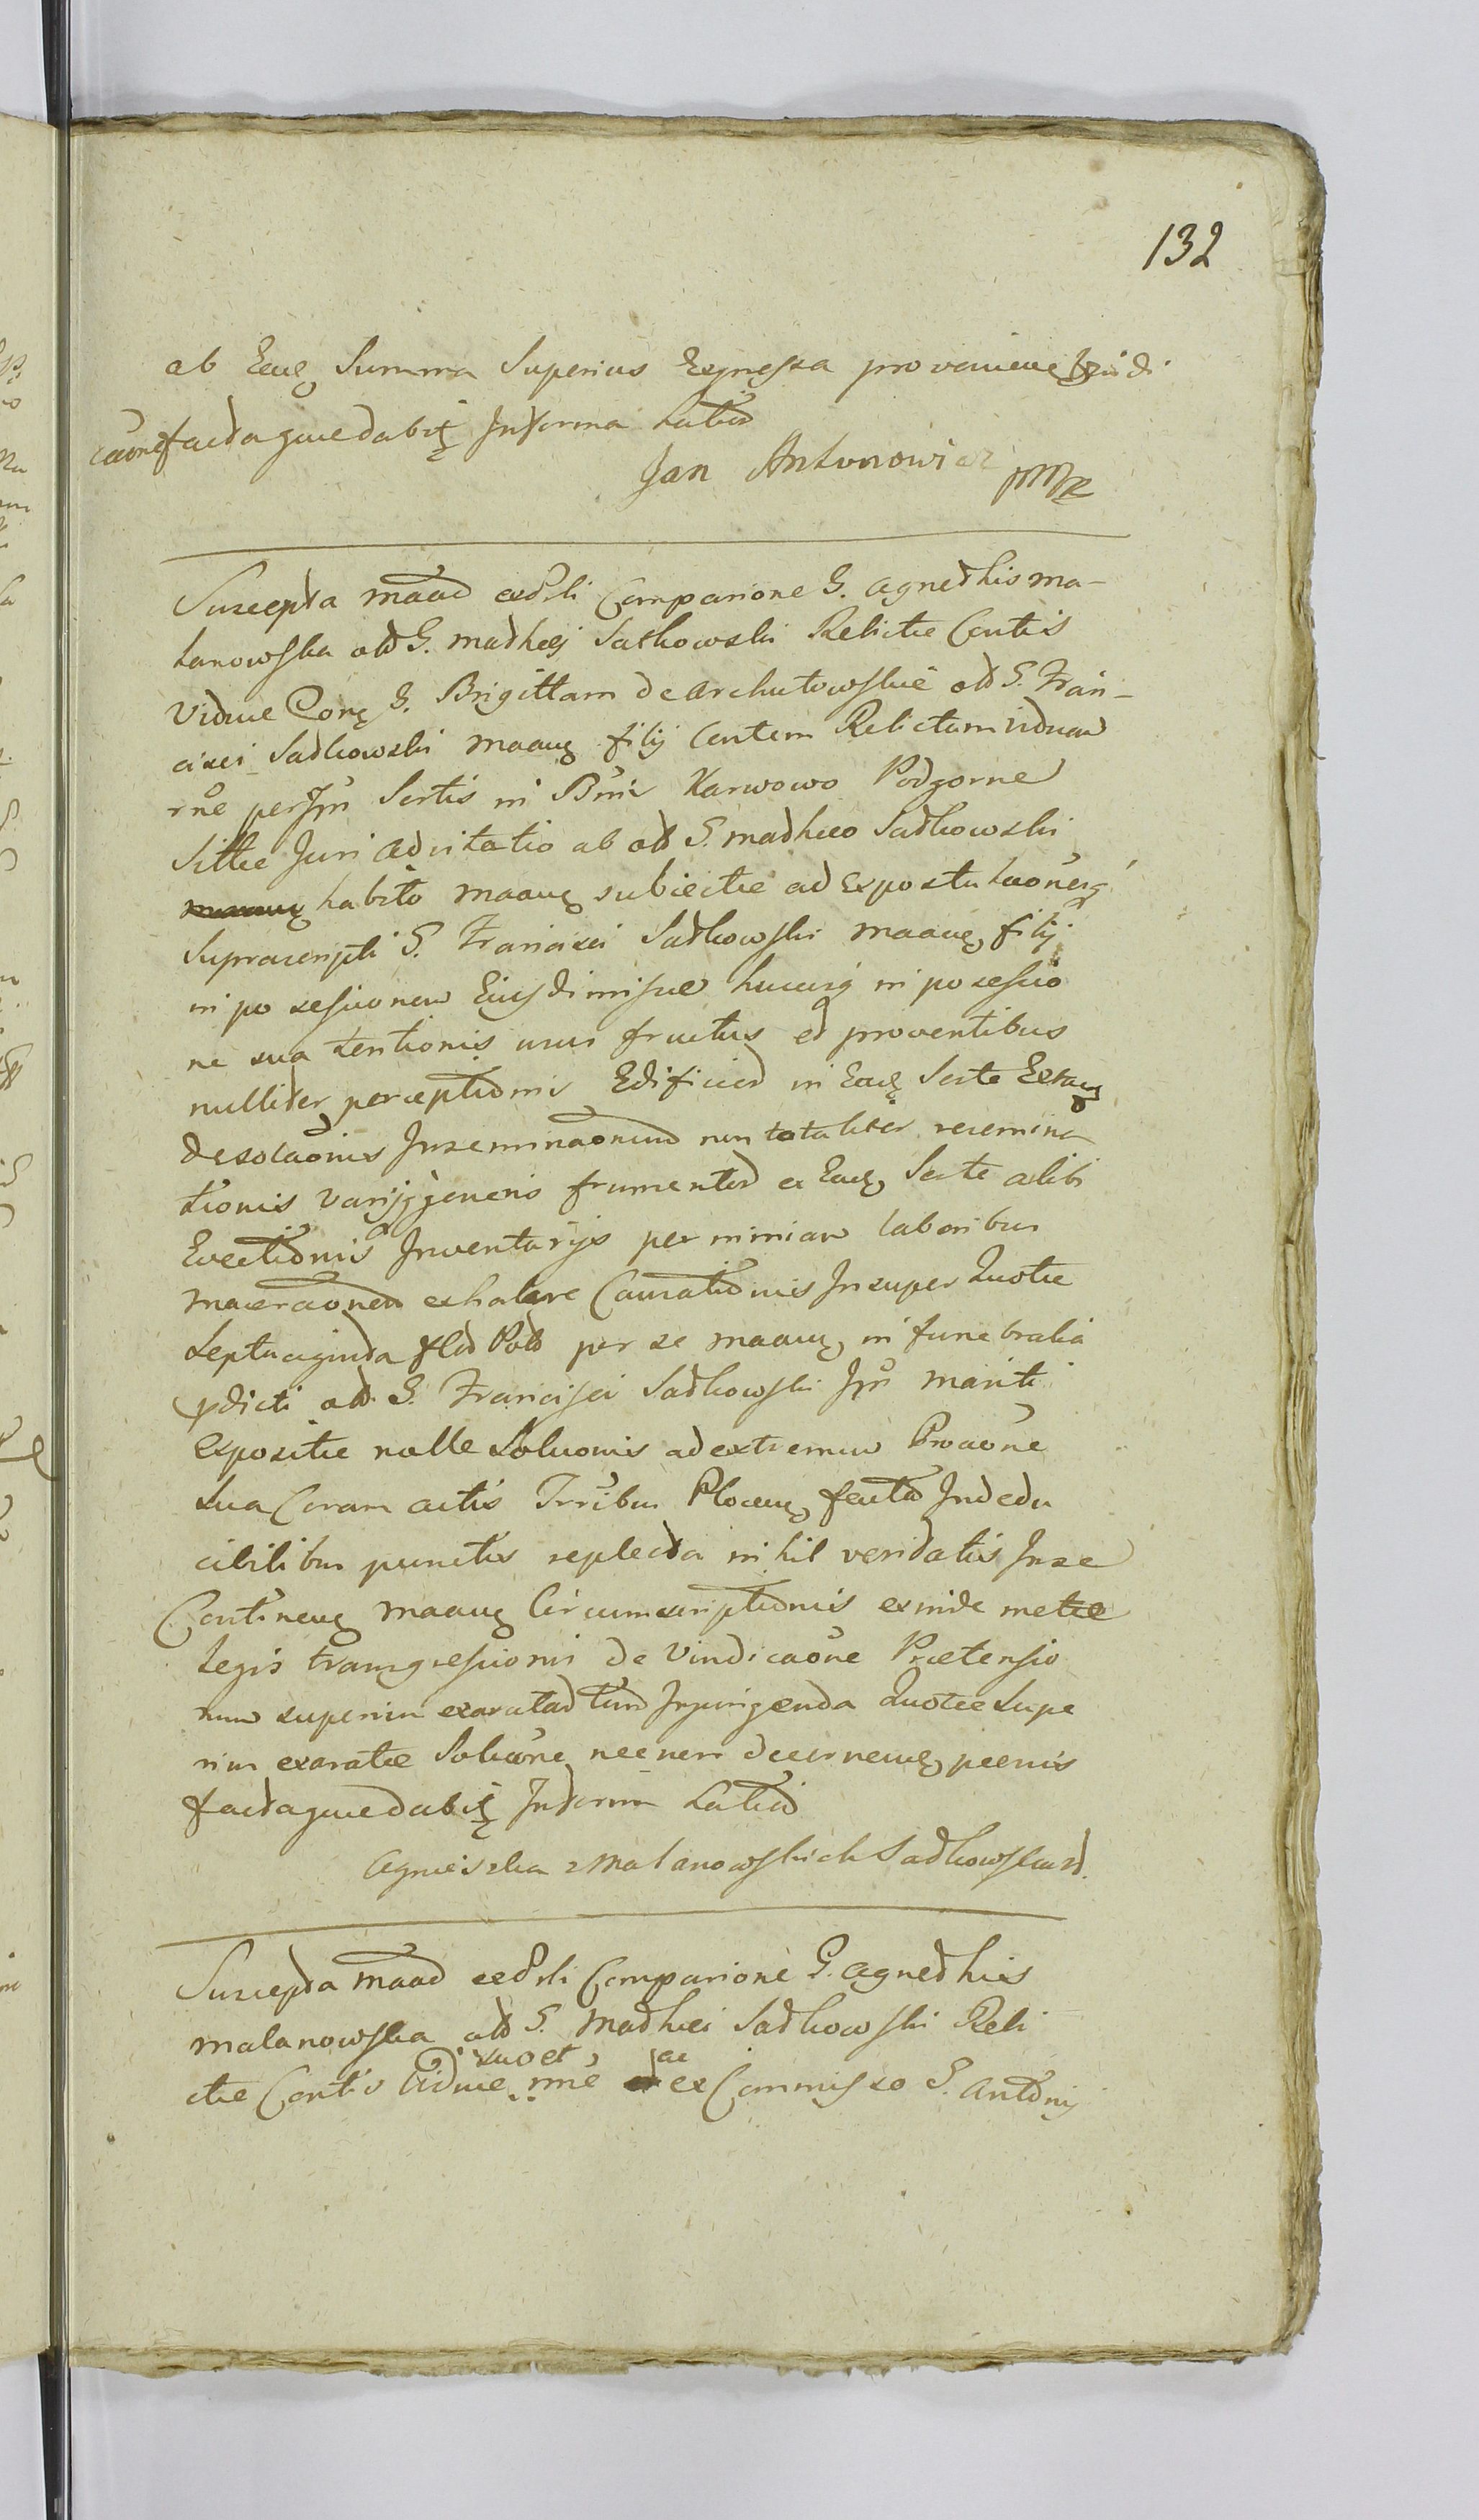 132
ab Eaug Summa Superius Expressa proveniente Vindi
caone factaquedabit Informa Lati
Jan Antonowicz mp
Suscepta maad ex Prli Comparione G. Agnethis Ma-
lanowska olb G. Mathej Sadkowski Relictæ Contis
Viduæ Cong G. Brigittam de Archutowskie olb G. Fran-
cisci Sadkowski maaug filij Contem Relictam viduam
rne per Ipm Sortis in Bnis Karwowo Podgorne
Sittæ Juri Advitatio ab olb G. Mathæo Sadkowski
habito maaug subiectæ ad Expostulaoneq
Suprascripti G. Francisci Sadkowski maaug filij
in possessionem Eius dimissæ hucusq in possessio
ne sua tentionis usus fructus et proventibus
nulliter perceptionis Edificior in Eaug Sorte Extaug
desolaonis Inseminaonum non totaliter resemina
tionis varijg generis frumentor ex Eaug Sorte alibi
Evectionis Inventarijs per nimiam laboribus
maceraonem exhalare Causationis Insuper Quotæ
Septuaginta flor Pol per se maaug in funebralia
pdicti olb G. Francisci Sadkowski Ipm mariti
Expositæ nolle Soluonis ad extremum Proaone
sua Coram actis Trribus Plocaug facta Indedu
cibilibus punctis repleta nihil veridatis Inse
Contineug maaug Circumscriptionis exinde metæ
Legis transgressionis de Vindicaone Prætensio
num superius exaratar tum Irrigenda Quotæ Supe
rius exaratæ Soluone necnon decerneug pœnis
factaquedabit Informa Lati
Agnieszka z Malanowskich Sadkowska
Suscepta maad ex Prli Comparione G. Agnethis
Malanowska olb G. Mathæi Sadkowski Reli
suo et ac
ctæ Contis Viduæ nne ex Commisso G. Antonij